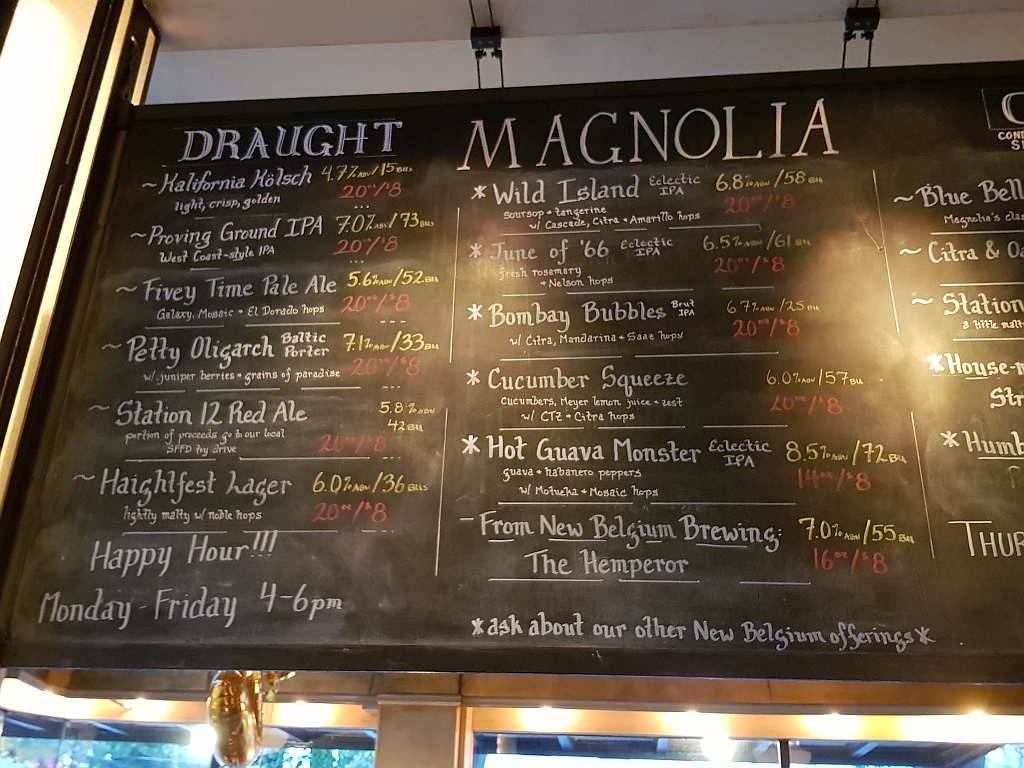 DRAUGHT
~Kalifornia Kölsch 4.7%ABV/15IBUs
light, crisp, golden 20oz/$8
~Proving Ground IPA 7.0%ABV/73IBUs
West Coast-style IPA 20oz/$8
~Fivey Time Pale Ale 5.6%ABV/52IBU
Galaxy, Mosaic + El Dorado hops 20oz/$8
~Petty Oligarch Baltic Porter 7.1%ABV/33IBU
w/ juniper berries + grains of paradise 20oz/$8
~Station 12 Red Ale 5.8%ABV
42IBU
portion of proceeds go to our local
SFFD toy drive 20oz/$8
~Haightfest Lager 6.0%ABV/36IBUs
lightly malty w/ noble hops 20oz/$8
Happy Hour!!!
Monday-Friday 4-6pm
MAGNOLIA
*Wild Island Eclectic IPA 6.8%ABV/58IBU
soursop + tangerine 20oz/$8
w/ Cascade, Citra + Amarillo hops
*June of '66 Eclectic IPA 6.5%ABV/61IBU
fresh rosemary 20oz/$8
+ Nelson hops
*Bombay Bubbles Brut IPA 6.7%ABV/25IBU
w/ Citra, Mandarina + Saaz hops 20oz/$8
*Cucumber Squeeze 6.0%ABV/57IBU
Cucumbers, Meyer lemon juice + zest 20oz/$8
w/ CTZ + Citra hops
*Hot Guava Monster Eclectic IPA 8.5%ABV/72IBU
guava + habanero peppers 14oz/$8
w/ Motueka + Mosaic hops
-From New Belgium Brewing: 7.0%ABV/55IBU
The Hemperor 16oz/$8
*ask about our other New Belgium offerings*
C
CON
S
~Blue Bell
Magnolia's clas
~Citra & O
~Station
a little malt
*House-m
Str
*Humb
THUR